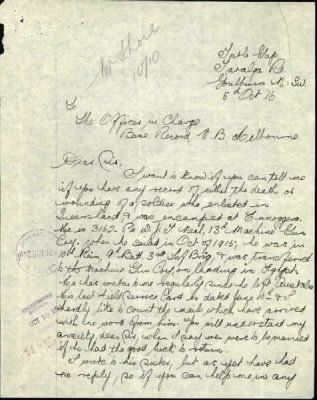 Tarlo Gap
Taralga Rd
Goulburn N. S. W.
8th Oct 16
To
The Officer in Charge
Base Record V. B Melbourne
Dear Sir,
I want to know if you can tell me
if you have any record of either the death or
wounding of a soldier who enlisted in
Queensland, & was encamped at Ennoggera.
He is 3162. Pte W. J. Neal, 13th Machine Gun
Coy, when he sailed in Oct of 1915, he was in
10th Rein, 9th Batt, 3rd Inf Brig, & was transferred
to the Machine Gun Coy, on landing in Egypt.
He has written me regularly since he left Australia
his last Field Service Card is dated June 10th & I
hardly like to count the mails which have arrived
with no word from him. You will understand my
anxiety, dear Sir, when I say we were to be married
if he had the good luck to return.
I wrote to his sister, but as yet have had
no reply, so if you can help me in any